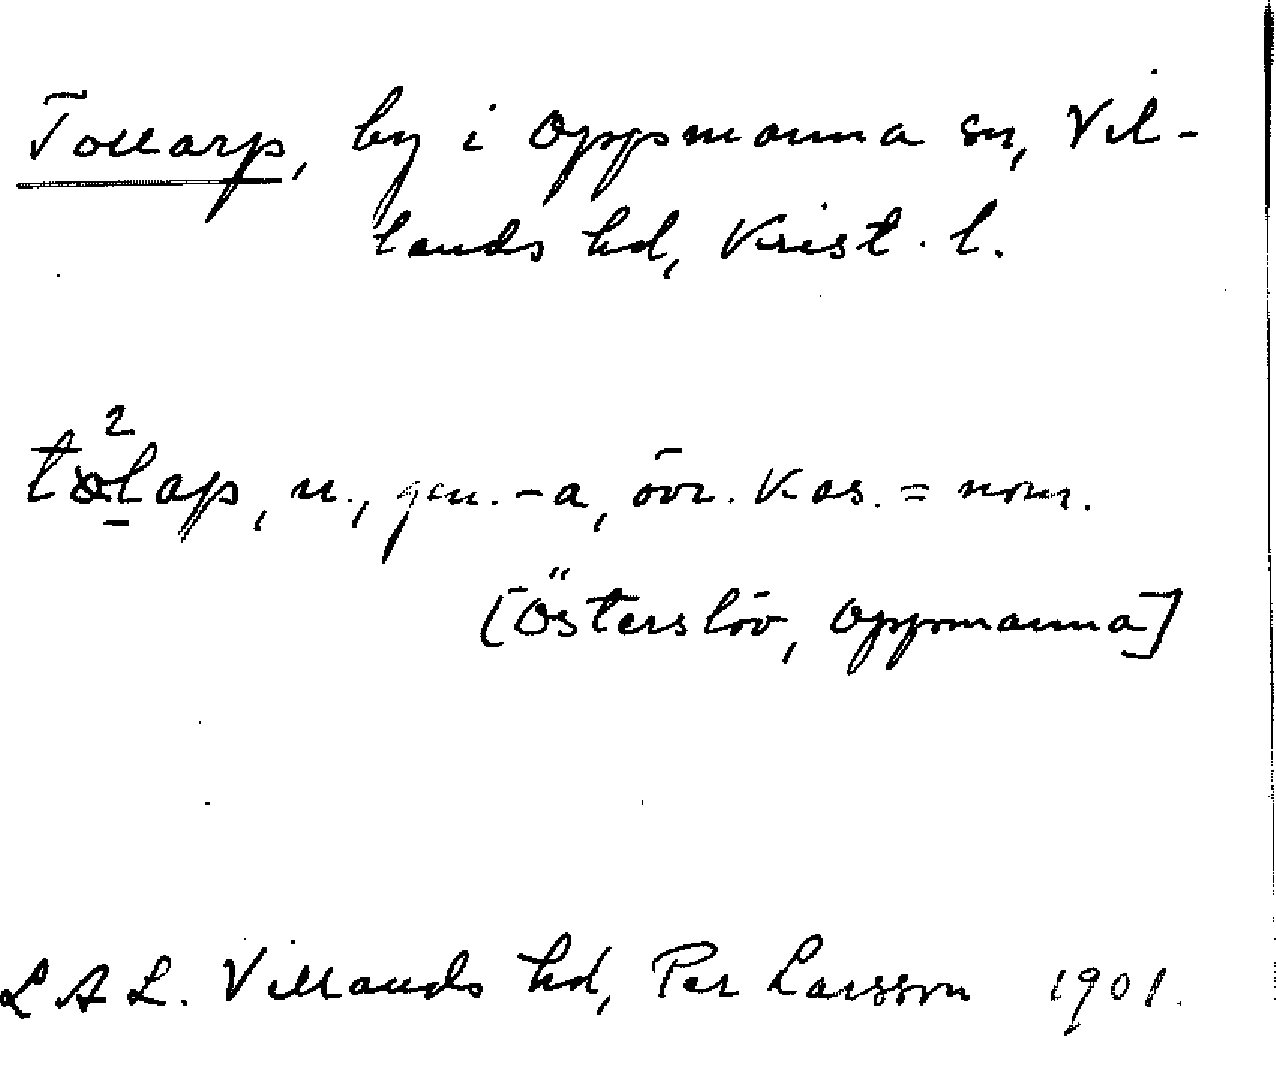 Tollarp, by i Oppmanna sn, Vil-
lands hd, Krist. l.
tɷ²l̠ap, n., gen. -a, övr. kas. = nom.
[Österslöv, Oppmanna]
LAL. Villands hd, Per Larsson 1901.